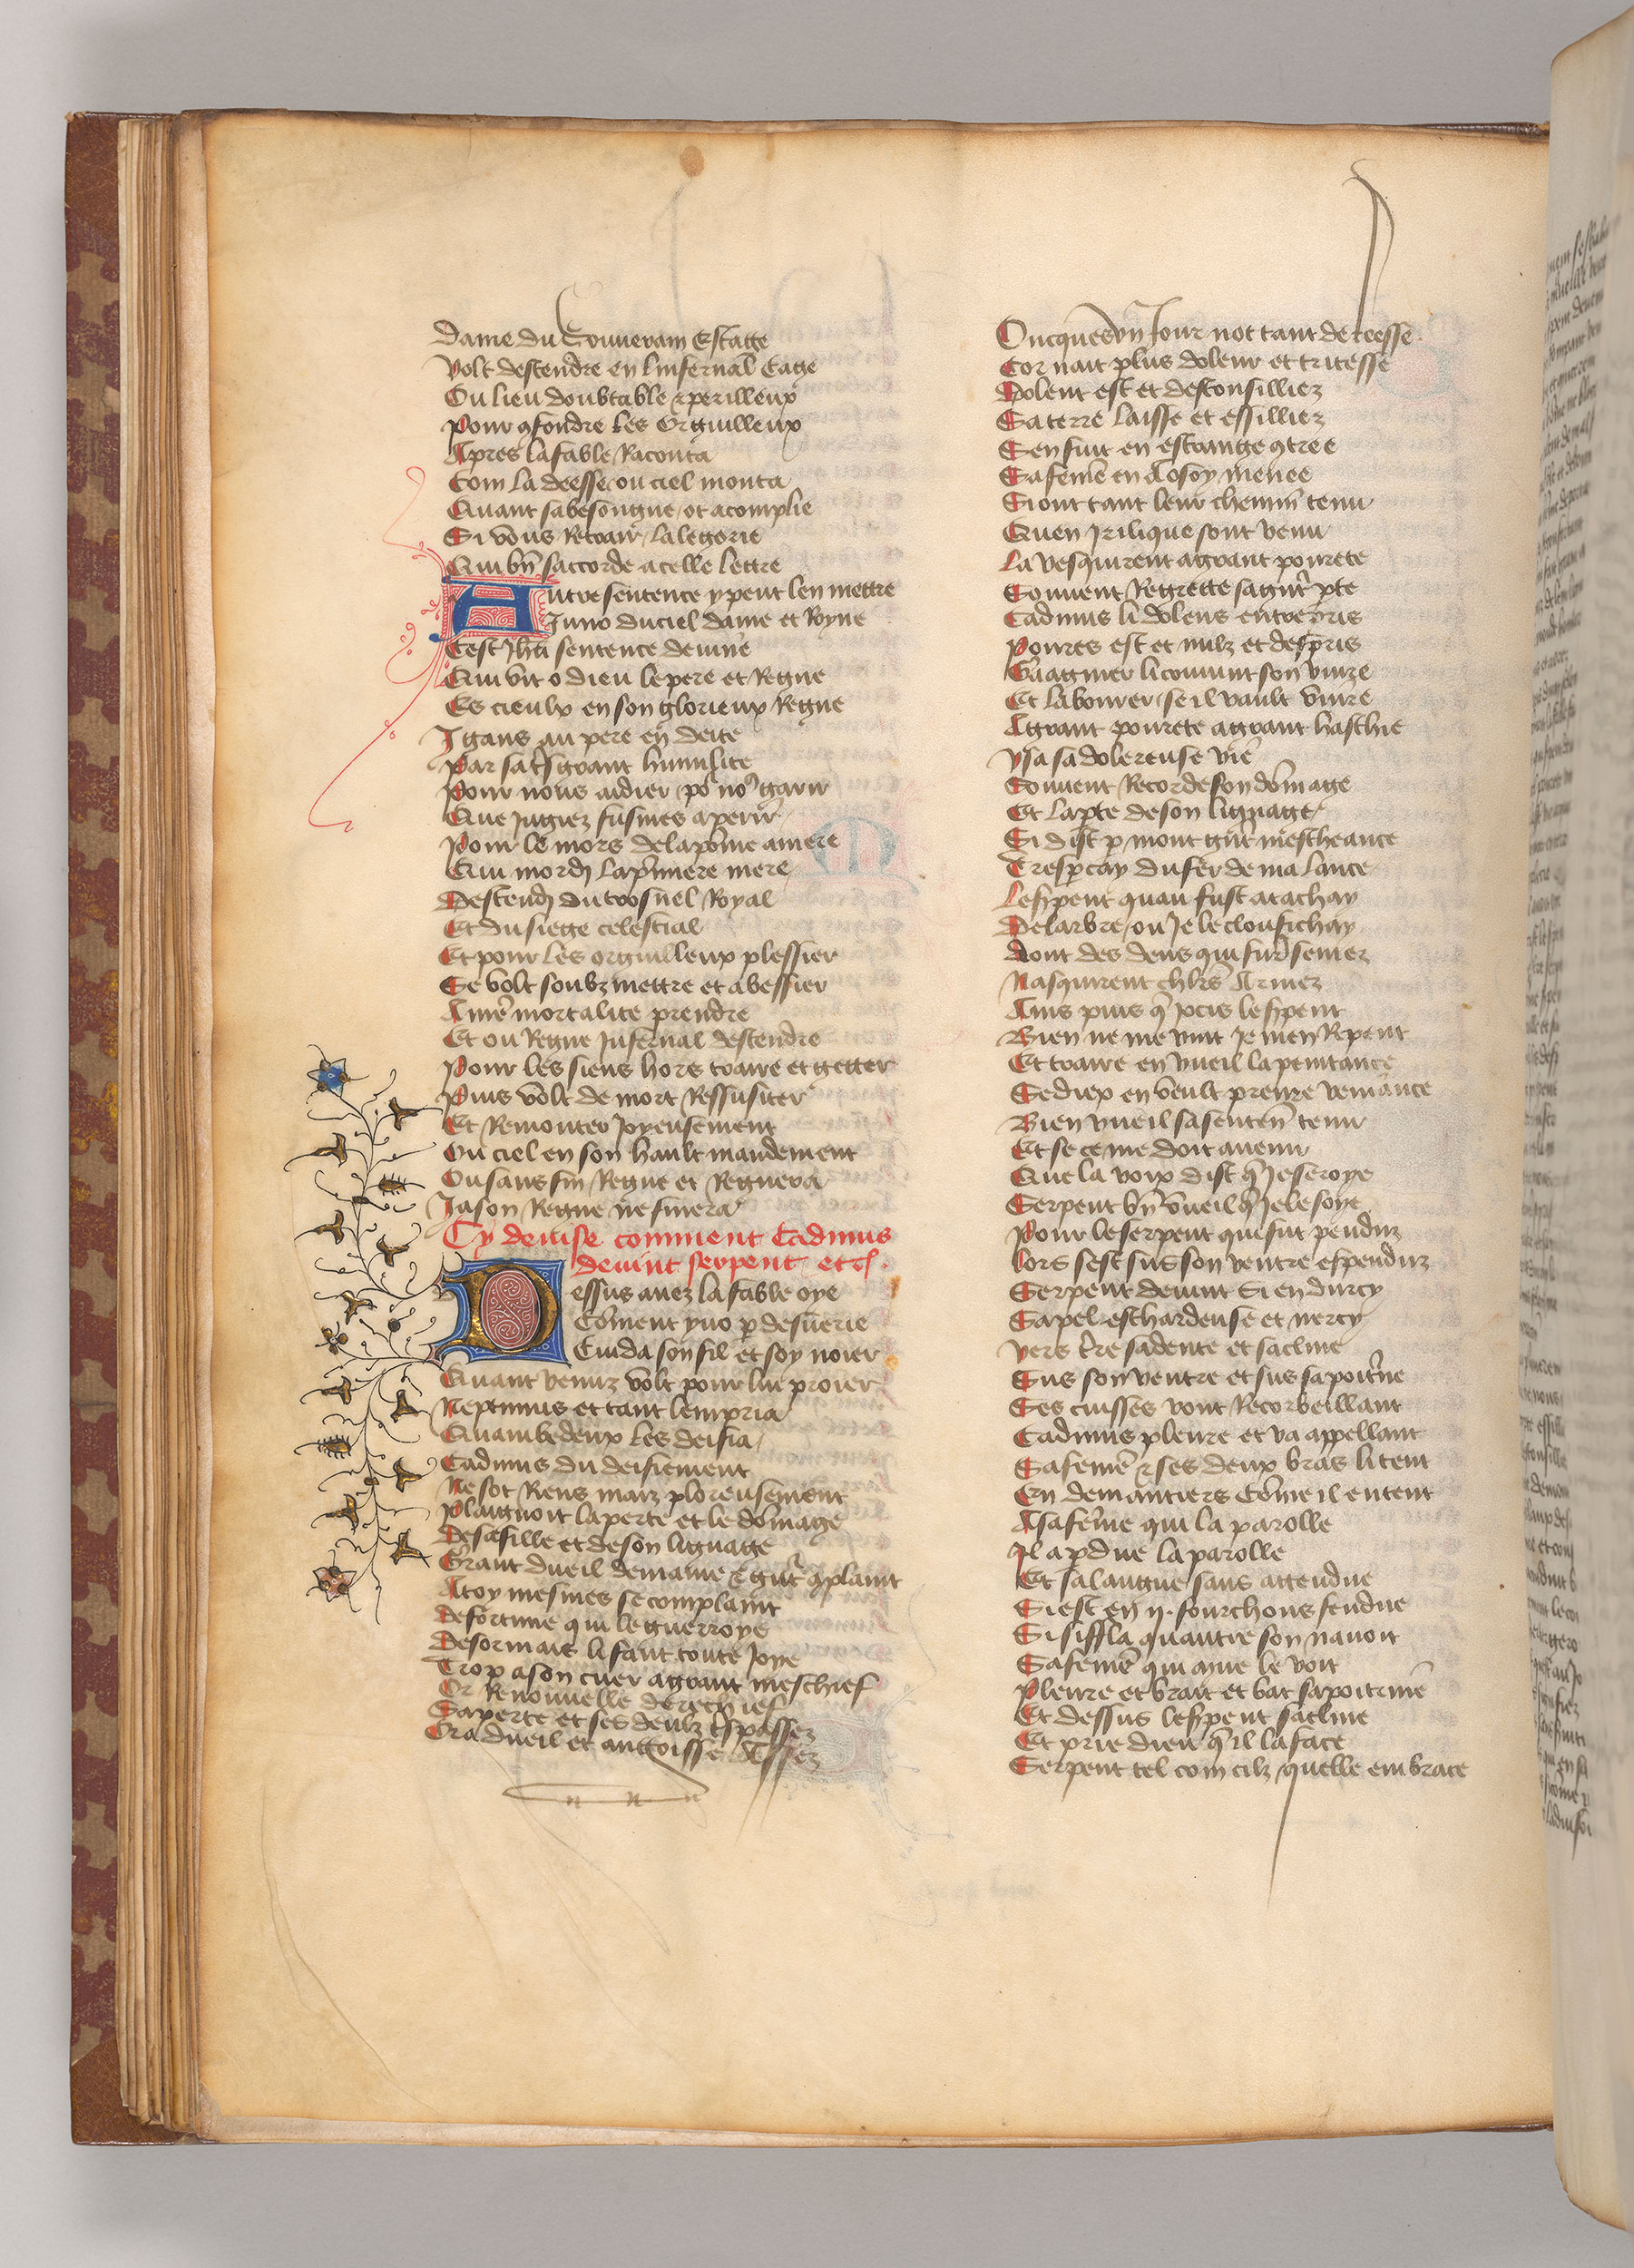 Dame du Souverain Estage
Volt descendre en linfernal Cage
Ou lieu doubtable & perilleux
Pour 9fondre les Orguilleux
Apres la fable Raconta
Com la deesse ou ciel monta
Quant sa besongne ot acomplie
Si vous Retrair lalegorie
Qui bn̄ saccorde a celle lettre
Autre sentence y peut len mettre
Juno du ciel dame et Royne
Cest Jhū sentence deuine
Qui vit o dieu le pere et Regne
Es cieulx en son glorieux Regne
Igaus au pere en deite
Par sa tsgrant humilite
Pour nous aidier po no9 garir
Que Jugiez fusmes a perir
Pour le mors de la pōme amere
Qui mordi la pmiere mere
Descendi du trosnel Royal
Et du siege celestial
Et pour les orguilleux plessier
Se volt soubzmettre et abessier
A nrē mortalite prendre
Et ou Regne Infernal descendre
Pour les siens hors traire et getter
Puis volt de mort Ressusciter
Et Remonter Joyeusement
Ou ciel en son hault mandement
Ou sans fin Regne et Regnera
Ja son Regne ne finera
Cy deuise comment Cadmus
deuint serpent etc.
Dessus auez la fable oye
Cōment yno p desuerie
Cuida son fil et soy noier
Quant venuz volt pour lui proier
Neptunus et tant lempria
Quambedeux les deifia
Cadmus du deifiement
Ne sot Riens maiz ploreusement
Plaignoit la perte et le dōmage
De sa fille et de son lignage
Grant dueil demaine & grāt 9plaint
A soy mesmes se complaint
De fortune qui le guerroye
Desormais li faut toute Joye
Trop a son cuer a grant meschief
Or Renouuelle derechief
Sa perte et ses deulz tspassez
Or a dueil et angoisse Assez
Oncques vn Jour not tant de leesse
Cor nait plus doleur et tritesse
Dolent est et desconsilliez
Sa terre laisse et essilliez
Sen fuit en estrange 9tree
Sa femē en a o soy menee
Si ont tant leur chemin tenu
Quen Irilique sont venu
La vesquirent a grant pourete
Souuent Regrette sa grāt pte
Cadmus li dolens entrepris
Poures est et nulz et despris
Gaagnier li conuint son viure
Et labourer se il vault viure
A grant pourete a grant haschie
Vsa sa dolereuse vie
Souuent Recorde son dōmage
Et la pte de son lignage
Si dist p mont grāt mescheance
Trespcay du fer de ma lance
Le spent quau fust atachay
De larbre ou Je le cloufichay
Dont des dens qui furt semez
Nasquirent chlrs Armez
Ains puis q̄ Jocis le spent
Bien ne me vint Je men Repent
Et traire en vueil la penitance
Se diex en veult prenre veniance
Bien vueil sa sentence tenir
Et se ce me doit auenir
Que la voix dist q̄ Je seroye
Serpent bn̄ vueil q̄ Je le soye
Pour le serpent que fut penduz
Lors sest sus son ventre espenduz
Serpent deuint Si endurcy
Sa pel eschardeuse et nercy
Vers tre sadente et sacline
Sus son ventre et sus sa poitrne
Ses cuisses vont Recorbeillant
Cadmus pleure et va appellant
Sa femē & ses deux bras li tent
En dementiers Cōme il entent
A sa femē qui la parolle
Il a pdue la parolle
Et sa langue sans attendue
Si est en ij. fourchons fendue
Si siffla quautre son nauoit
Sa femē qui aīne le voit
Pleure et brait et bat sa poitrine
Et dessus le spent sacline
Et prie dieu q̄ il la face
Serpent tel com cilz quelle embrace